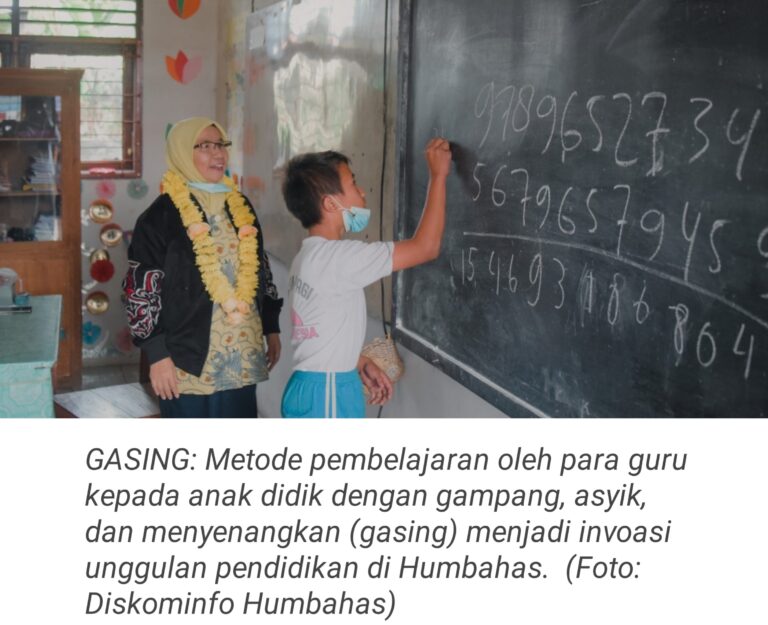 9789652734
5679657945
GASING: Metode pembelajaran oleh para guru
kepada anak didik dengan gampang, asyik,
dan menyenangkan (gasing) menjadi invoasi
unggulan pendidikan di Humbahas. (Foto:
Diskominfo Humbahas)